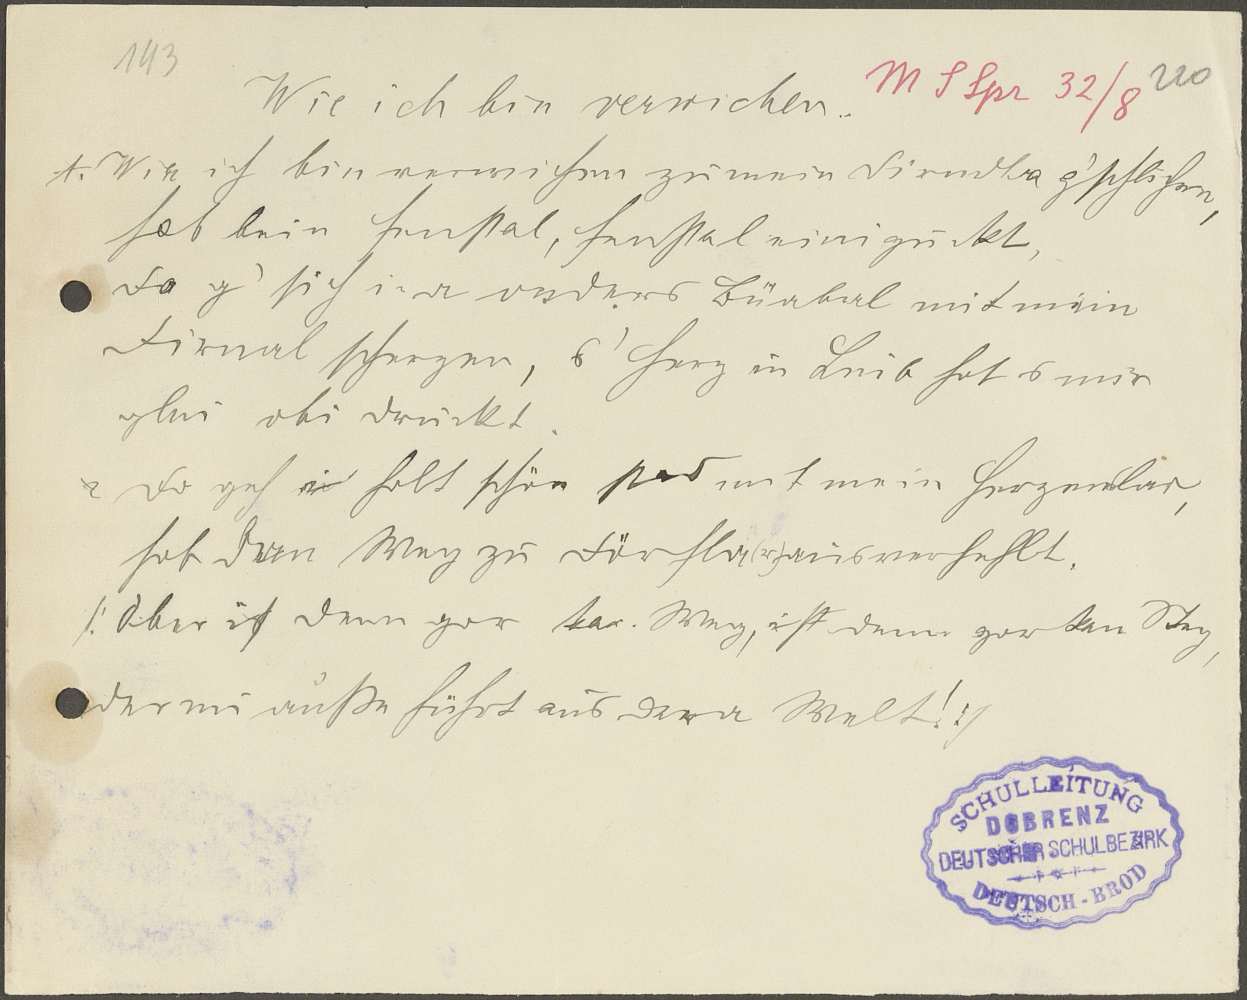 143
Wie ich bin verwichen.
M S Spr 32/8 220
1. Wie ich bin verwichen zu mein Dirndla g'schlichen,
hab bein Fenstal, Fenstal einiguckt,
Do g'sich i a onders Büabal mit mein
Dirnal scherzen, 's Herz in Leib hot s mir
glei obi druckt.
2 Do geh i holt schön stad mit mein Herzenlad,
hob den Weg zu Dörfla(r) aus verfehlt.
/: Ober ist denn gor kan Weg, ist denn gor kan Steg,
der mi auße führt aus dera Welt! :/
SCHULLEITUNG
DOBRENZ
DEUTSCHER SCHULBEZIRK
DEUTSCH-BROD